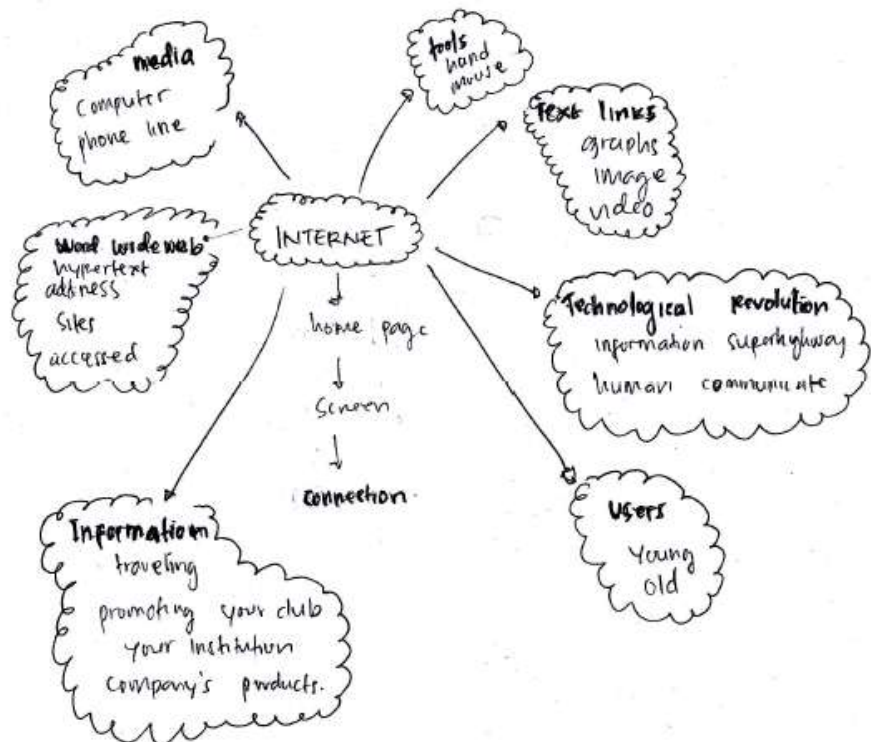 media
computer
phone line
tools
hand
mouse
Text links
graphs
image
video
INTERNET
Word wide web
hypertext
address
sites
accessed
home page
screen
connection
Technological revolution
information superhighway
human communicate
Users
young
old
Information
traveling
promoting your club
your institution
company's products.